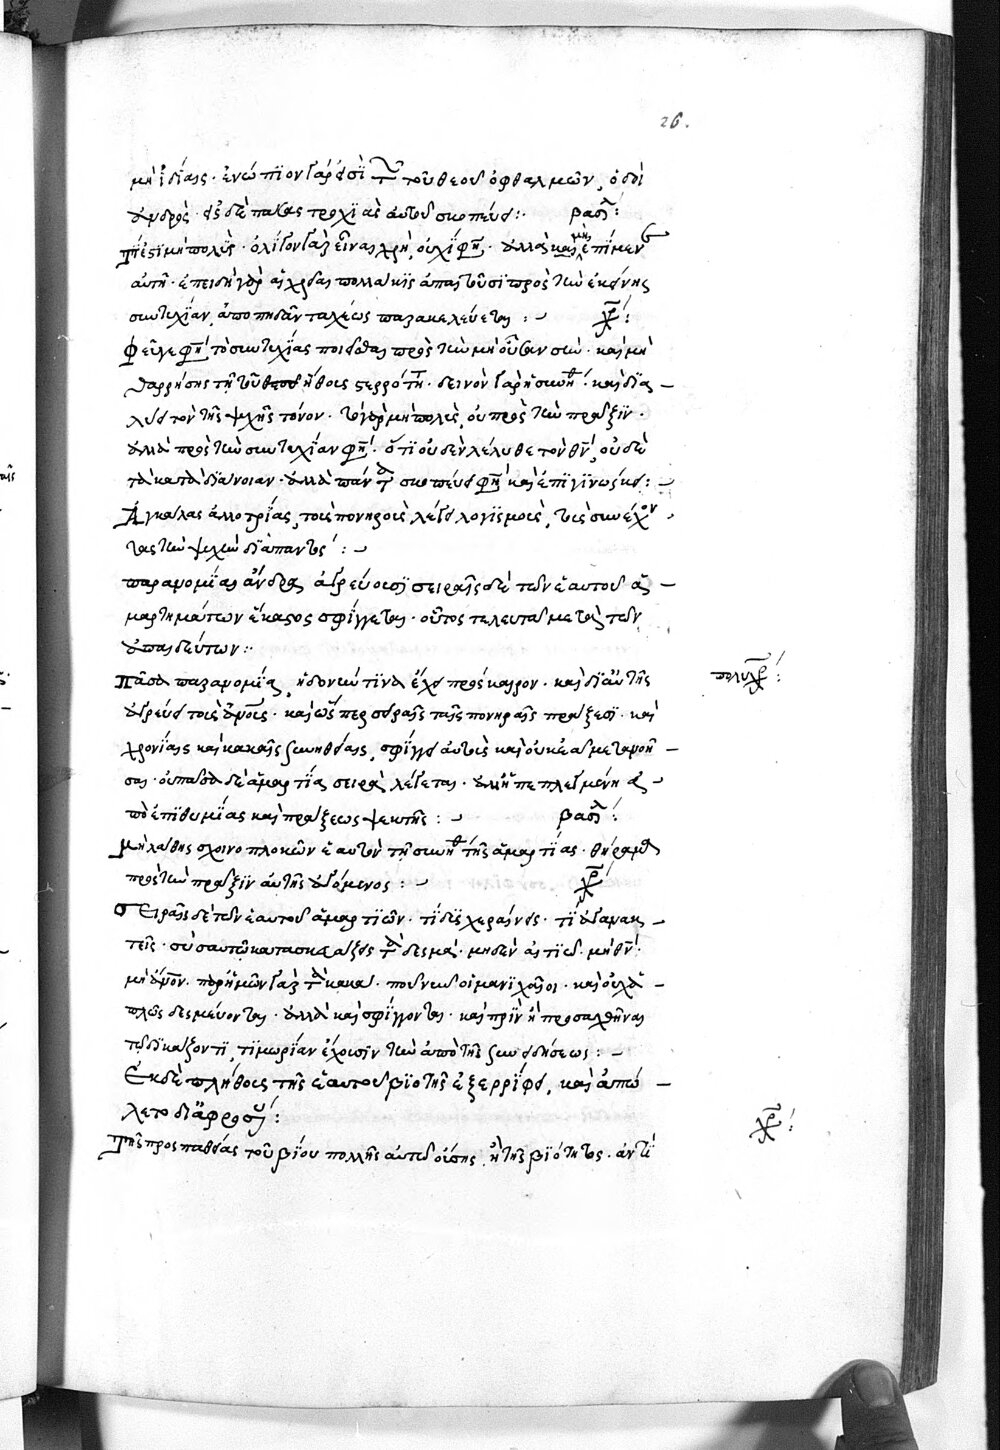 26.
μὴ ἰδίαις · ἐνώπϊον γάρ εἰσϊ τῶν τοῦ θεοῦ ὀφθαλμῶν, ὁδοὶ
ἀνδρός · εἰς δὲ πάσας τροχϊὰς αὐτοῦ σκοπεύει :· βασιλ :
τί ἐστϊ μὴ πολὺς · ὀλίγον γὰρ εἶναι χρή, οὐχί φησι · ἀλλὰ καὶ μὴ ἐπίμεν
αὐτῆ · ἐπειδὴ γὰρ αἰχραι πολλάκϊς ἀπαιτοῦσϊ πρὸς τὴν ἐκείνης
συντυχίαν, ἀποπηδᾶν ταχέως παρακελεύεται : χρ :
Φεῦγε φησὶ τὸ συντυχίας ποιεῖσθαι πρὸς τὴν μὴ οὖσαν σὴν · καὶ μὴ
θαρρήσης τῆ τοῦ ἤθους στερρότητι · δεινὸν γὰρ ἡ συνήθ · καὶ δϊα
λύει τὸν τῆς ψυχῆς τόνον · τὸ γὰρ μὴ πολὺς, οὐ πρὸς τὴν πρᾶξϊν ·
ἀλλὰ πρὸς τὴν συντυχίαν φησὶ · ὅτϊ οὐδὲν λέληθε τὸν θν, οὐδὲ
τὰ κατὰ δϊάνοιαν · ἀλλὰ πάντα σκοπεύει φησὶ καὶ ἐπϊγϊνώσκει :
Ἀγκάλας ἀλλοτρίας, τοὺς πονηροὺς λέγει λογϊσμοὺς, τοὺς συνέχον
τας τὴν ψυχὴν δϊαπαντὸς :
παρανομίαι ἄνδρα ἀγρεύουσϊ σειραῖς δὲ τῶν ἑαυτοῦ ἁ
μαρτημάτων ἕκαστος σφίγγεται · οὗτος τελευτᾶ μετὰ τῶν
ἀπαιδεύτων :
Πᾶσα παρανομία, ἡδονήν τϊνα ἔχει πρόσκαιρον · καὶ δϊ' αὐτῆς
ἀγρεύει τοὺς ἀνους · καὶ ὥσπερ σειραῖς ταῖς πονηραῖς πράξεσϊ · καὶ
χρονίαις καὶ κακαῖς συνηθείαις, σφίγγει αὐτοὺς καὶ οὐκ ἐᾶ μετανοῆ
σαι · οὐ πᾶσα δὲ ἁμαρτία σειρὰ λέγεται · ἀλλ' ἡ πεπλεγμένη ἀ
πὸ ἐπϊθυμίας καὶ πράξεως ψεκτῆς : βασιλ :
Μὴ λάθης σχοινοπλοκῶν ἑαυτὸν τῆ συνηθ τῆς ἁμαρτίας · θήραμα
πρὸς τὴν πρᾶξϊν αὐτῆς ἀγόμενος : χρ
Σειραῖς δὲ τῶν ἑαυτοῦ ἁμαρτϊῶν · τί δυσχεραίνεις · τί ἀγανακ
τεῖς · σὺ σαυτῶ κατασκευάζεις τὰ δεσμά · μηδὲν αἰτϊῶ · μὴ θν ·
μὴ ἀνον · παρ' ἡμῶν γὰρ τὰ κακά · ποῦ νῦν οἱ μανϊχαῖοι · καὶ οὐχ ἁ
πλῶς δεσμεύονται · ἀλλὰ καὶ σφίγγονται · καὶ πρὶν ἢ προσαχθῆναι
τῶ δϊκάζοντϊ, τϊμωρίαν ἔχουσϊν τὴν ἀπὸ τῆς συνειδήσεως :
Ἐκ δὲ πλήθους τῆς ἑαυτοῦ βϊοτῆς ἐξερρίφη, καὶ ἀπώ
λετο δι' ἀφροσύ :
Τῆς προσπαθείας τοῦ βίου πολλῆς αὐτῶ οὔσης, ἢ τῆς βϊότητος · ἀντὶ
χρ :